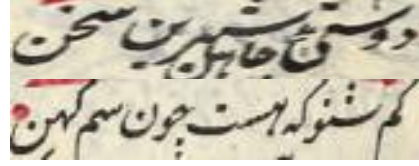 دوستی جاهل شیرین سخن
کم شنو که هست چون سم کهن